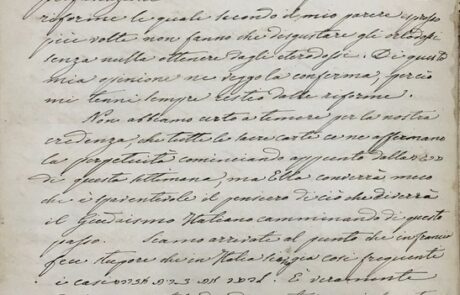 riforme le quali secondo il mio parere espresso
più volte non fanno che disgustare gli ortodossi
senza nulla ottenere dagli eterodossi. Di questa
mia opinione ne veggo la conferma, perciò
mi tenni sempre restio dalle riforme.
Non abbiamo certo a temere per la nostra
credenza, che tutte le sacre carte ce ne affermano
la perpetuità cominciando appunto dalla
di questa settimana, ma Ella converrà meco
che è spaventevole il pensiero di ciò che diverrà
il Giudaismo Italiano camminando di questo
passo. Siamo arrivati al punto che in Francia
fece stupore che in Italia sia così frequente
i casi È veramente